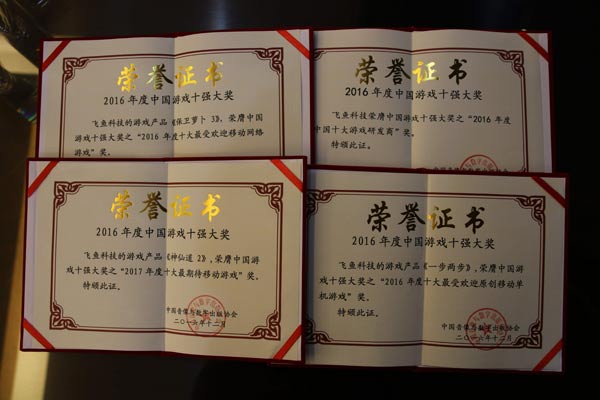 荣誉证书
2016 年度中国游戏十强大奖
飞鱼科技的游戏产品《保卫萝卜 3》,荣膺中国
游戏十强大奖之“2016 年度十大最受欢迎移动网络
游戏”奖。
荣誉证书
2016 年度中国游戏十强大奖
飞鱼科技荣膺中国游戏十强大奖之“2016 年度
中国十大游戏研发商”奖。
特颁此证。
荣誉证书
2016 年度中国游戏十强大奖
飞鱼科技的游戏产品《神仙道 2》,荣膺中国游
戏十强大奖之“2017 年度十大最期待移动游戏”奖。
特颁此证。
中国音像与数字出版协会
二〇一六年十二月
荣誉证书
2016 年度中国游戏十强大奖
飞鱼科技的游戏产品《一步两步》,荣膺中国游
戏十强大奖之“2016 年度十大最受欢迎原创移动单
机游戏”奖。
特颁此证。
中国音像与数字出版协会
二〇一六年十二月